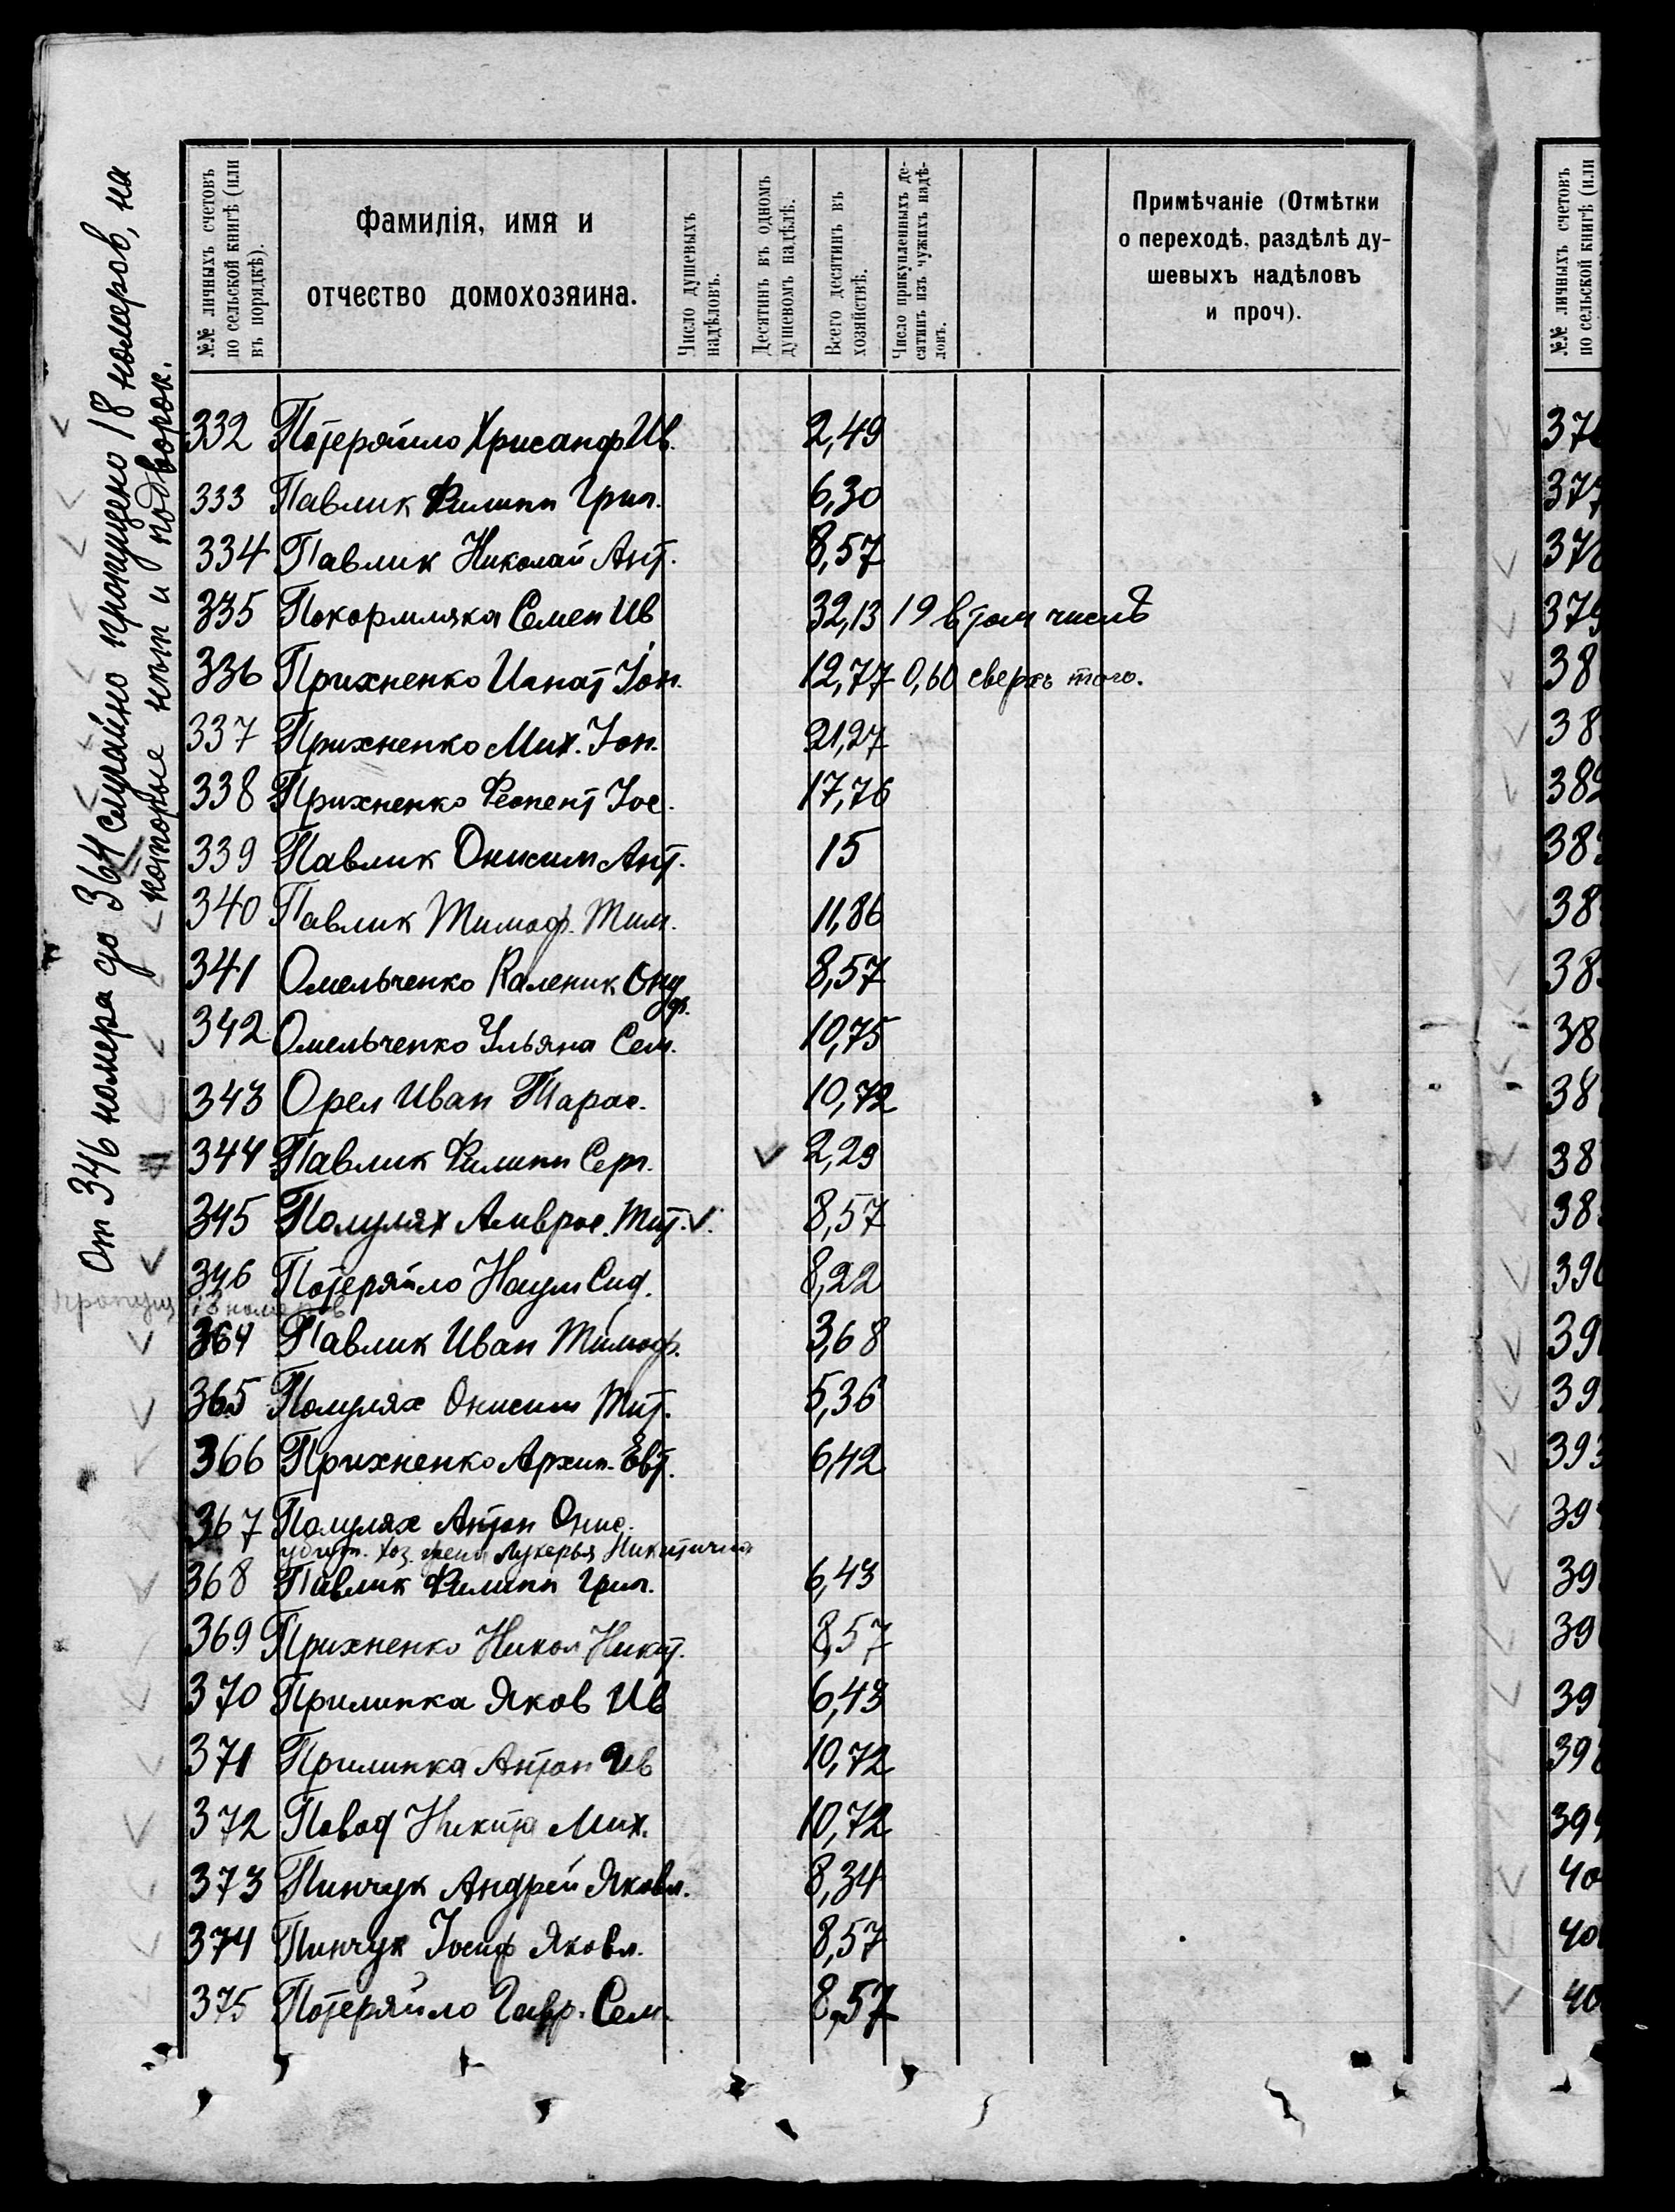 От 346 номера до 364 случайно пропущено 18 номеров, на
которые нет и подворок.
№№ личныхъ счетовъ
по сельской книгѣ (или
въ порядкѣ).
Фамилія, имя и
отчество домохозяина.
Число душевыхъ
надѣловъ.
Десятинъ въ одномъ
душевомъ надѣлѣ.
Всего десятинъ въ
хозяйствѣ.
Число прикупленныхъ де-
сятинъ изъ чужихъ надѣ-
ловъ.
Примѣчаніе (Отмѣтки
о переходѣ, раздѣлѣ ду-
шевыхъ надѣловъ
и проч).
332 Потеряйло Хрисанф Ив. 2,49
333 Павлик Филипп Григ. 6,30
334 Павлик Николай Ант. 8,57
335 Покормляка Семен Ив 32,13 19 в том числѣ
336 Прихненко Игнат Іон. 12,77 0,60 сверхъ того.
337 Прихненко Мих. Іон. 21,27
338 Прихненко Феопент Іос. 17,76
339 Павлик Онисим Ант. 15
340 Павлик Тимоф. Тим. 11,86
341 Омельченко Каленик Онуфр. 8,57
342 Омельченко Ульяна Сем. 10,75
343 Орел Иван Тарас. 10,72
344 Павлик Филипп Серг. 2,29
345 Помулях Амврос. Тит. 8,57
346 Потеряйло Наум Сид. 8,22
Пропущ 18 номеров
364 Павлик Иван Тимоф. 3,68
365 Помулях Онисим Тит. 5,36
366 Прихненко Архип. Евт. 6,42
367 Помулях Антон Онис.
убит. хоз. жена Лукерья Никитична
368 Павлик Филипп Григ. 6,43
369 Прихненко Никол Никит. 8,57
370 Прилипка Яков Ив 6,43
371 Прилипка Антон Ив 10,72
372 Повод Никита Мих. 10,72
373 Пинчук Андрей Яковл. 8,34
374 Пинчук Іосиф Яковл. 8,57
375 Потеряйло Гавр. Сем. 8,57
№№ личныхъ счетовъ
по сельской книгѣ (или